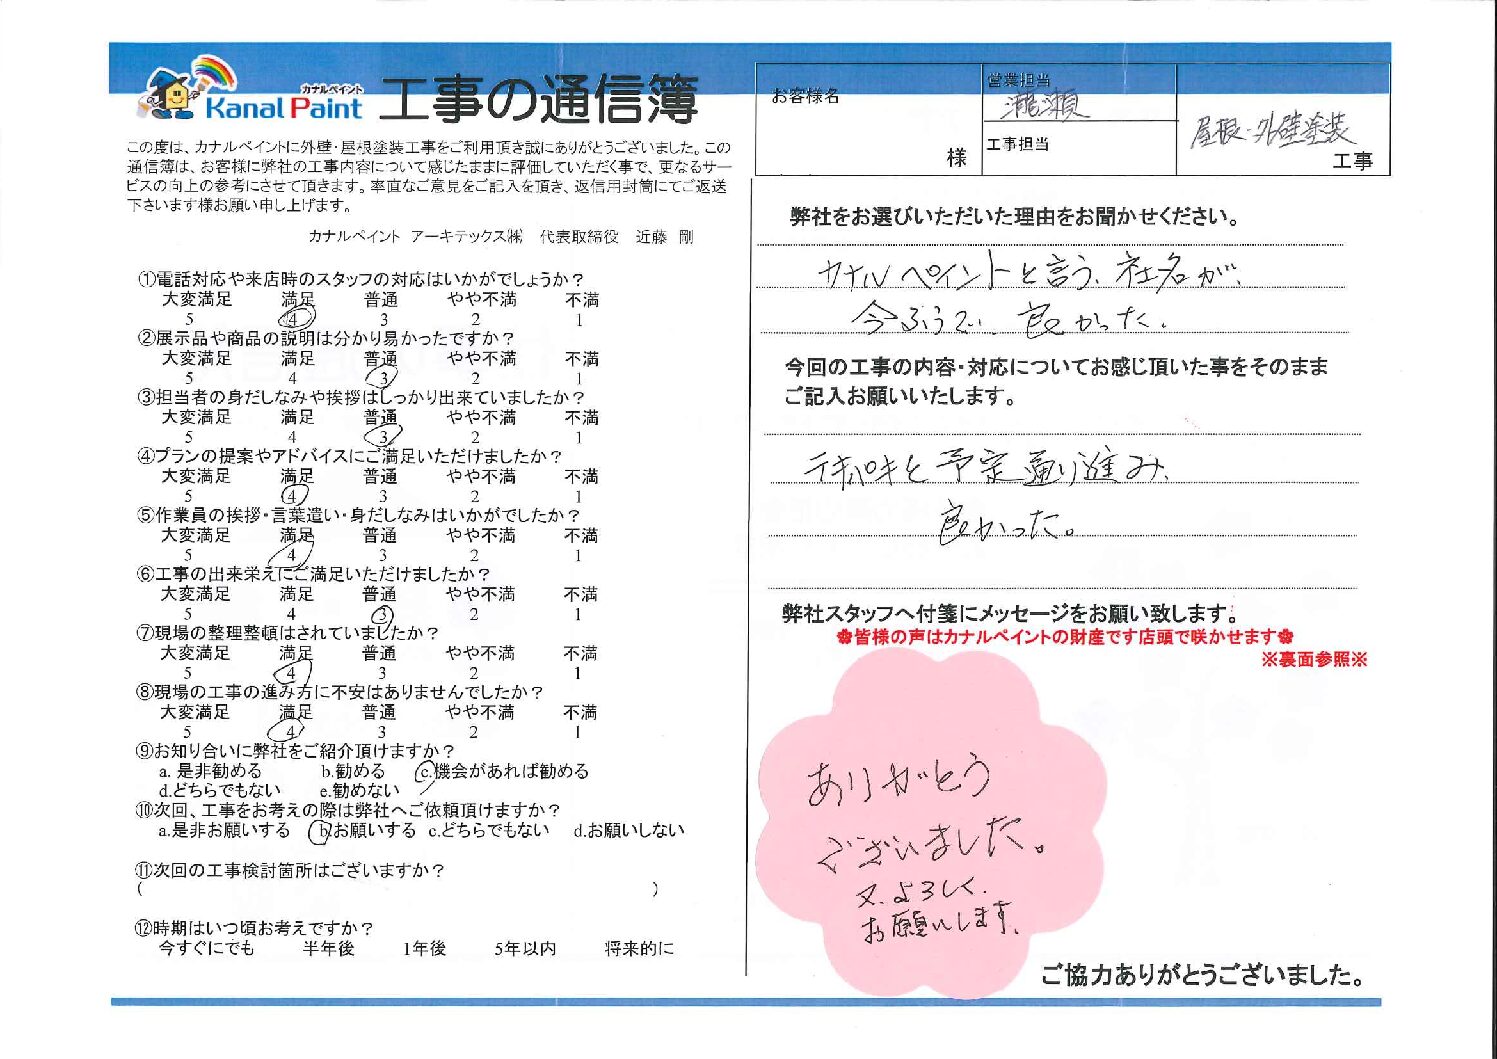 カナルペイント
Kanal Paint
工事の通信簿
この度は、カナルペイントに外壁・屋根塗装工事をご利用頂き誠にありがとうございました。この
通信簿は、お客様に弊社の工事内容について感じたままに評価していただく事で、更なるサー
ビスの向上の参考にさせて頂きます。率直なご意見をご記入を頂き、返信用封筒にてご返送
下さいます様お願い申し上げます。
カナルペイント アーキテックス㈱ 代表取締役 近藤 剛
①電話対応や来店時のスタッフの対応はいかがでしょうか？
大変満足 満足 普通 やや不満 不満
5 4 3 2 1
②展示品や商品の説明は分かり易かったですか？
大変満足 満足 普通 やや不満 不満
5 4 3 2 1
③担当者の身だしなみや挨拶はしっかり出来ていましたか？
大変満足 満足 普通 やや不満 不満
5 4 3 2 1
④プランの提案やアドバイスにご満足いただけましたか？
大変満足 満足 普通 やや不満 不満
5 4 3 2 1
⑤作業員の挨拶・言葉遣い・身だしなみはいかがでしたか？
大変満足 満足 普通 やや不満 不満
5 4 3 2 1
⑥工事の出来栄えにご満足いただけましたか？
大変満足 満足 普通 やや不満 不満
5 4 3 2 1
⑦現場の整理整頓はされていましたか？
大変満足 満足 普通 やや不満 不満
5 4 3 2 1
⑧現場の工事の進み方に不安はありませんでしたか？
大変満足 満足 普通 やや不満 不満
5 4 3 2 1
⑨お知り合いに弊社をご紹介頂けますか？
a. 是非勧める b.勧める c.機会があれば勧める
d.どちらでもない e.勧めない
⑩次回、工事をお考えの際は弊社へご依頼頂けますか？
a.是非お願いする b.お願いする c.どちらでもない d.お願いしない
⑪次回の工事検討箇所はございますか？
( )
⑫時期はいつ頃お考えですか？
今すぐにでも 半年後 1年後 5年以内 将来的に
お客様名
様
営業担当
瀧瀬
工事担当
屋根・外壁塗装
工事
弊社をお選びいただいた理由をお聞かせください。
カナルペイントと言う、社名が、
今ふうで、良かった。
今回の工事の内容・対応についてお感じ頂いた事をそのまま
ご記入お願いいたします。
テキパキと予定通り進み、
良かった。
弊社スタッフへ付箋にメッセージをお願い致します。
✿皆様の声はカナルペイントの財産です店頭で咲かせます✿
※裏面参照※
ありがとう
ございました。
又、よろしく、
お願いします。
ご協力ありがとうございました。